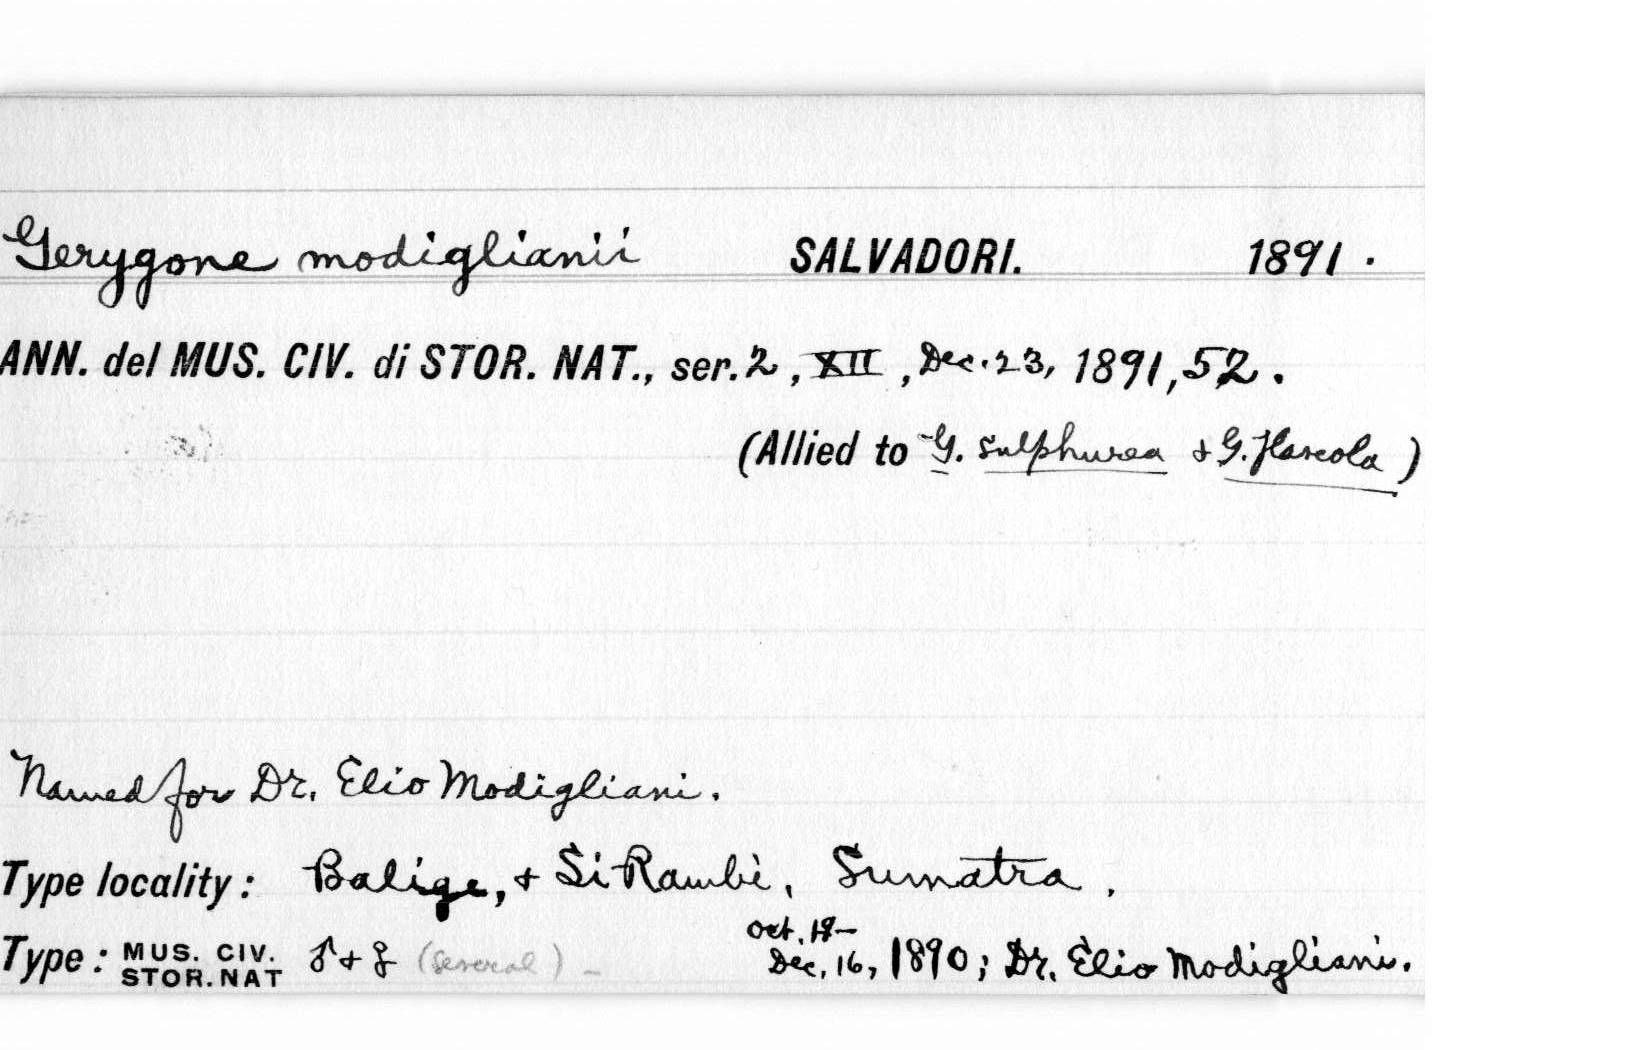 Gerygone modiglianii SALVADORI. 1891.
ANN. del MUS. CIV. di STOR. NAT., ser. 2, XII, Dec. 23, 1891, 52.
(Allied to G. sulphurea & G. flaveola)
Named for Dr. Elio Modigliani.
Type locality: Balige, & Si Rambè, Sumatra.
Oct. 18-
Type: MUS. CIV. STOR. NAT ♂ + ♀ (several) - Dec. 16, 1890; Dr. Elio Modigliani.